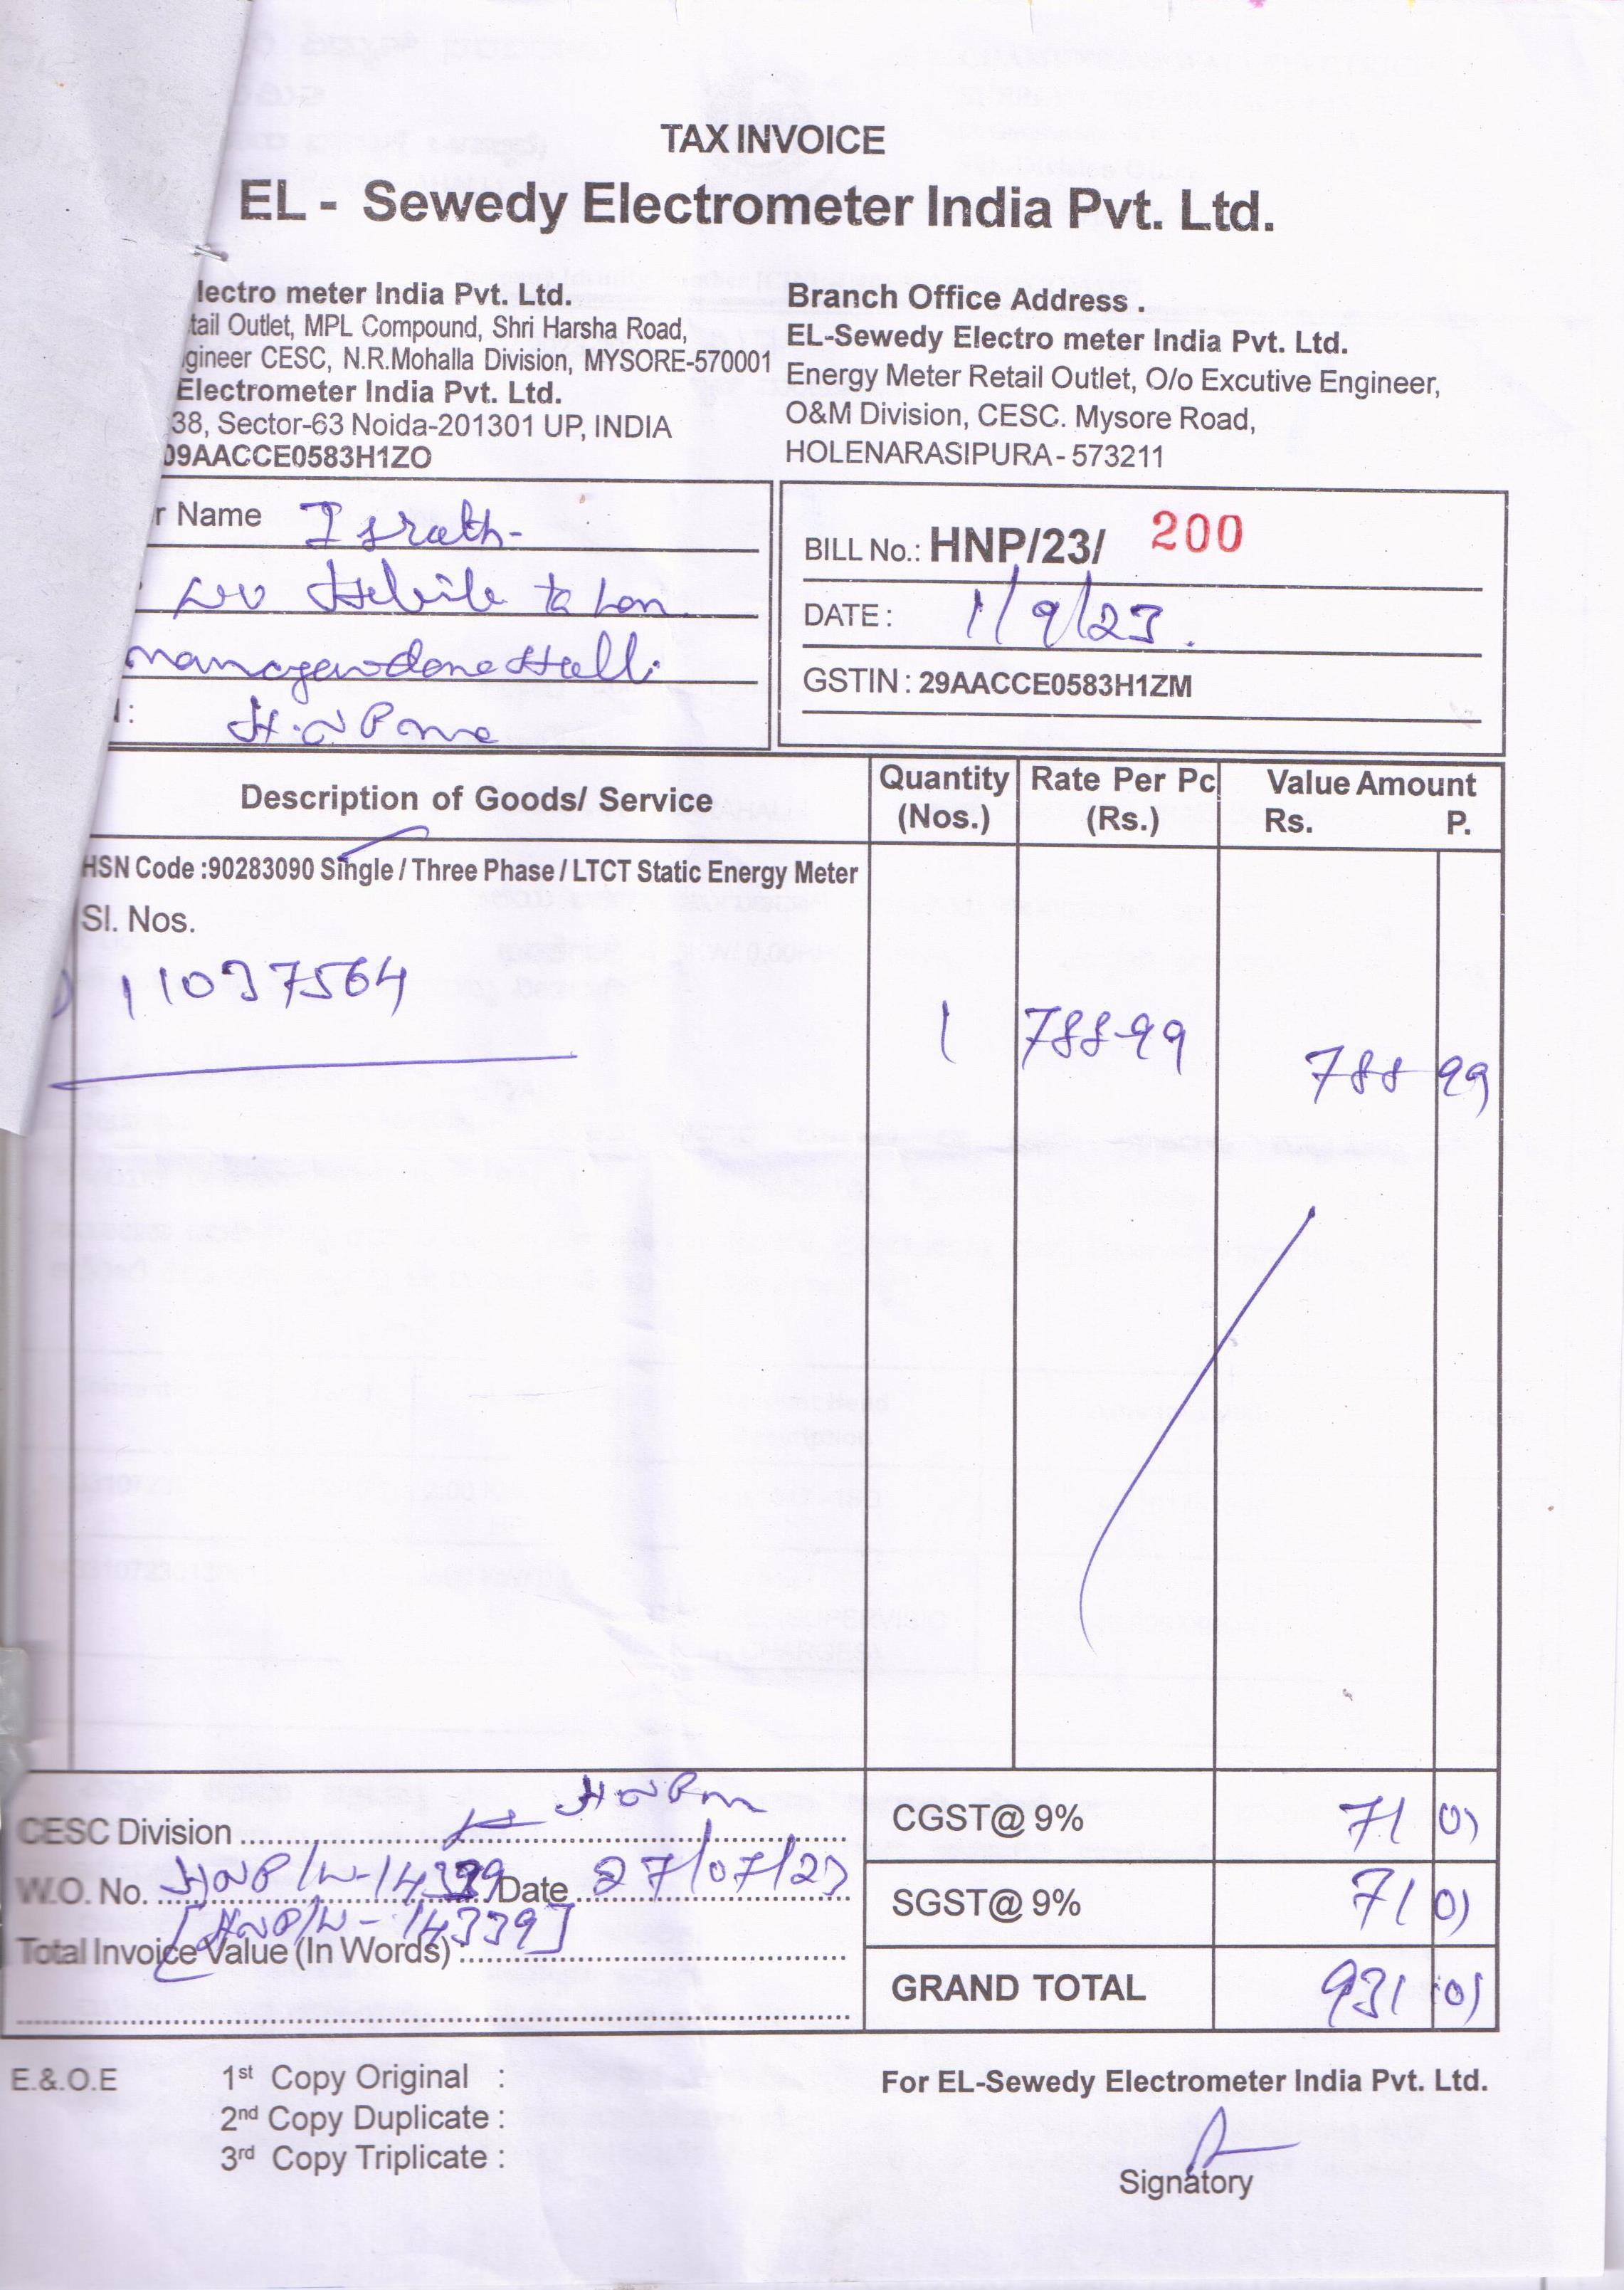 TAX INVOICE
EL - Sewedy Electrometer India Pvt. Ltd.
lectro meter India Pvt. Ltd.
tail Outlet, MPL Compound, Shri Harsha Road,
gineer CESC, N.R.Mohalla Division, MYSORE-570001
Electrometer India Pvt. Ltd.
38, Sector-63 Noida-201301 UP, INDIA
09AACCE0583H1ZO
Branch Office Address .
EL-Sewedy Electro meter India Pvt. Ltd.
Energy Meter Retail Outlet, O/o Excutive Engineer,
O&M Division, CESC. Mysore Road,
HOLENARASIPURA - 573211
r Name Israth-
H.N Pura
BILL No.: HNP/23/ 200
DATE : 1/9/23.
GSTIN : 29AACCE0583H1ZM
Description of Goods/ Service
Quantity (Nos.)
Rate Per Pc (Rs.)
Value Amount
Rs. P.
HSN Code :90283090 Single / Three Phase / LTCT Static Energy Meter
Sl. Nos.
11037564
1 788-99 788 99
CESC Division HNPura
W.O. No. HNP/W-14339 Date 27/07/23
[HNP/W-14339]
Total Invoice Value (In Words) :
CGST@ 9% 71 01
SGST@ 9% 71 01
GRAND TOTAL 931 01
E.&.O.E
1st Copy Original :
2nd Copy Duplicate :
3rd Copy Triplicate :
For EL-Sewedy Electrometer India Pvt. Ltd.
Signatory